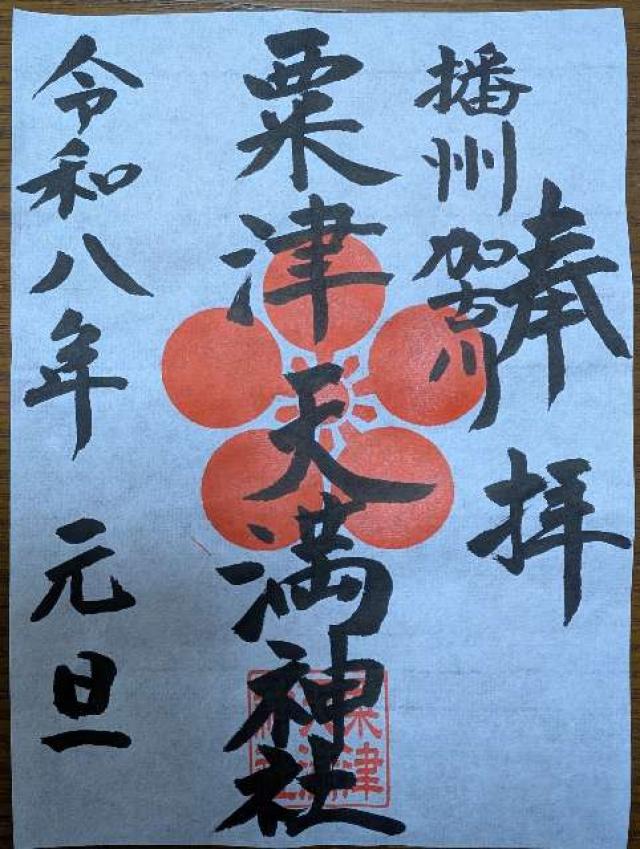 奉拝
播州加古川
粟津天満神社
令和八年 元旦